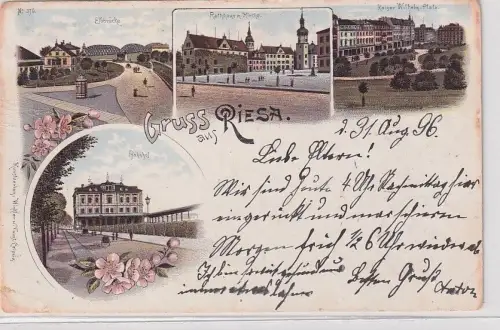 Nº 276
Elbbrücke
Rathhaus u. Kirche.
Kaiser Wilhelm-Platz.
Gruss aus RIESA.
Bahnhof.
d. 31. Aug 96
Liebe Eltern!
Wir sind heute 4 Uhr Nachmittag hier
eingerückt und marschieren
Morgen früh ½6 Uhr wieder ab
Ich bin
Besten Gruß